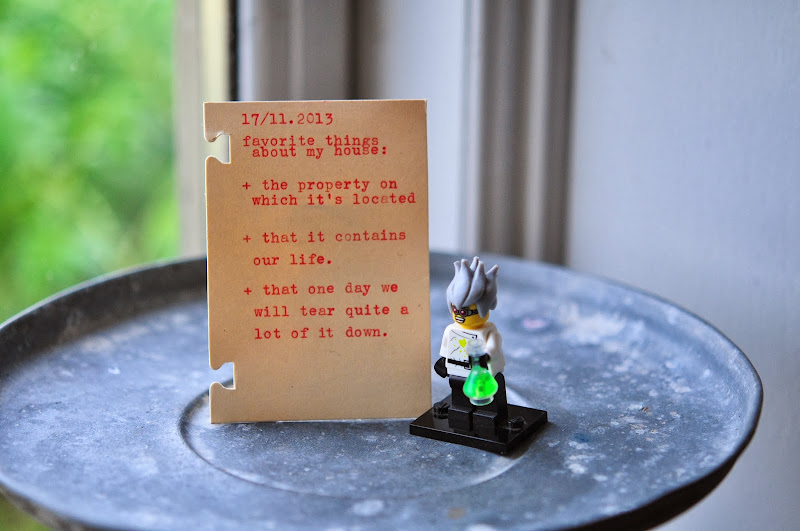 17/11.2013
favorite things
about my house:
+ the property on
which it's located
+ that it contains
our life.
+ that one day we
will tear quite a
lot of it down.